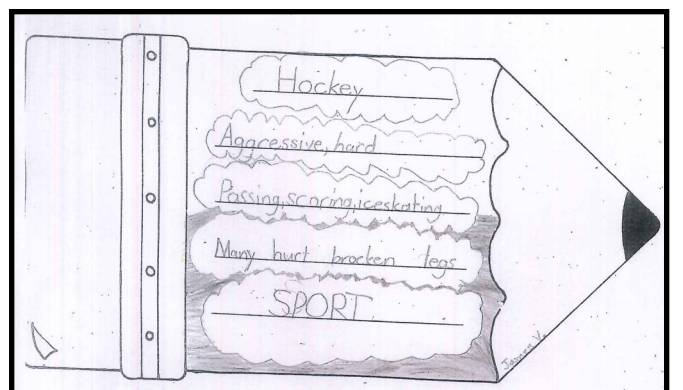 Hockey
Aggressive, hard
Passing, scoring, iceskating
Many hurt brocken legs
SPORT
James V.